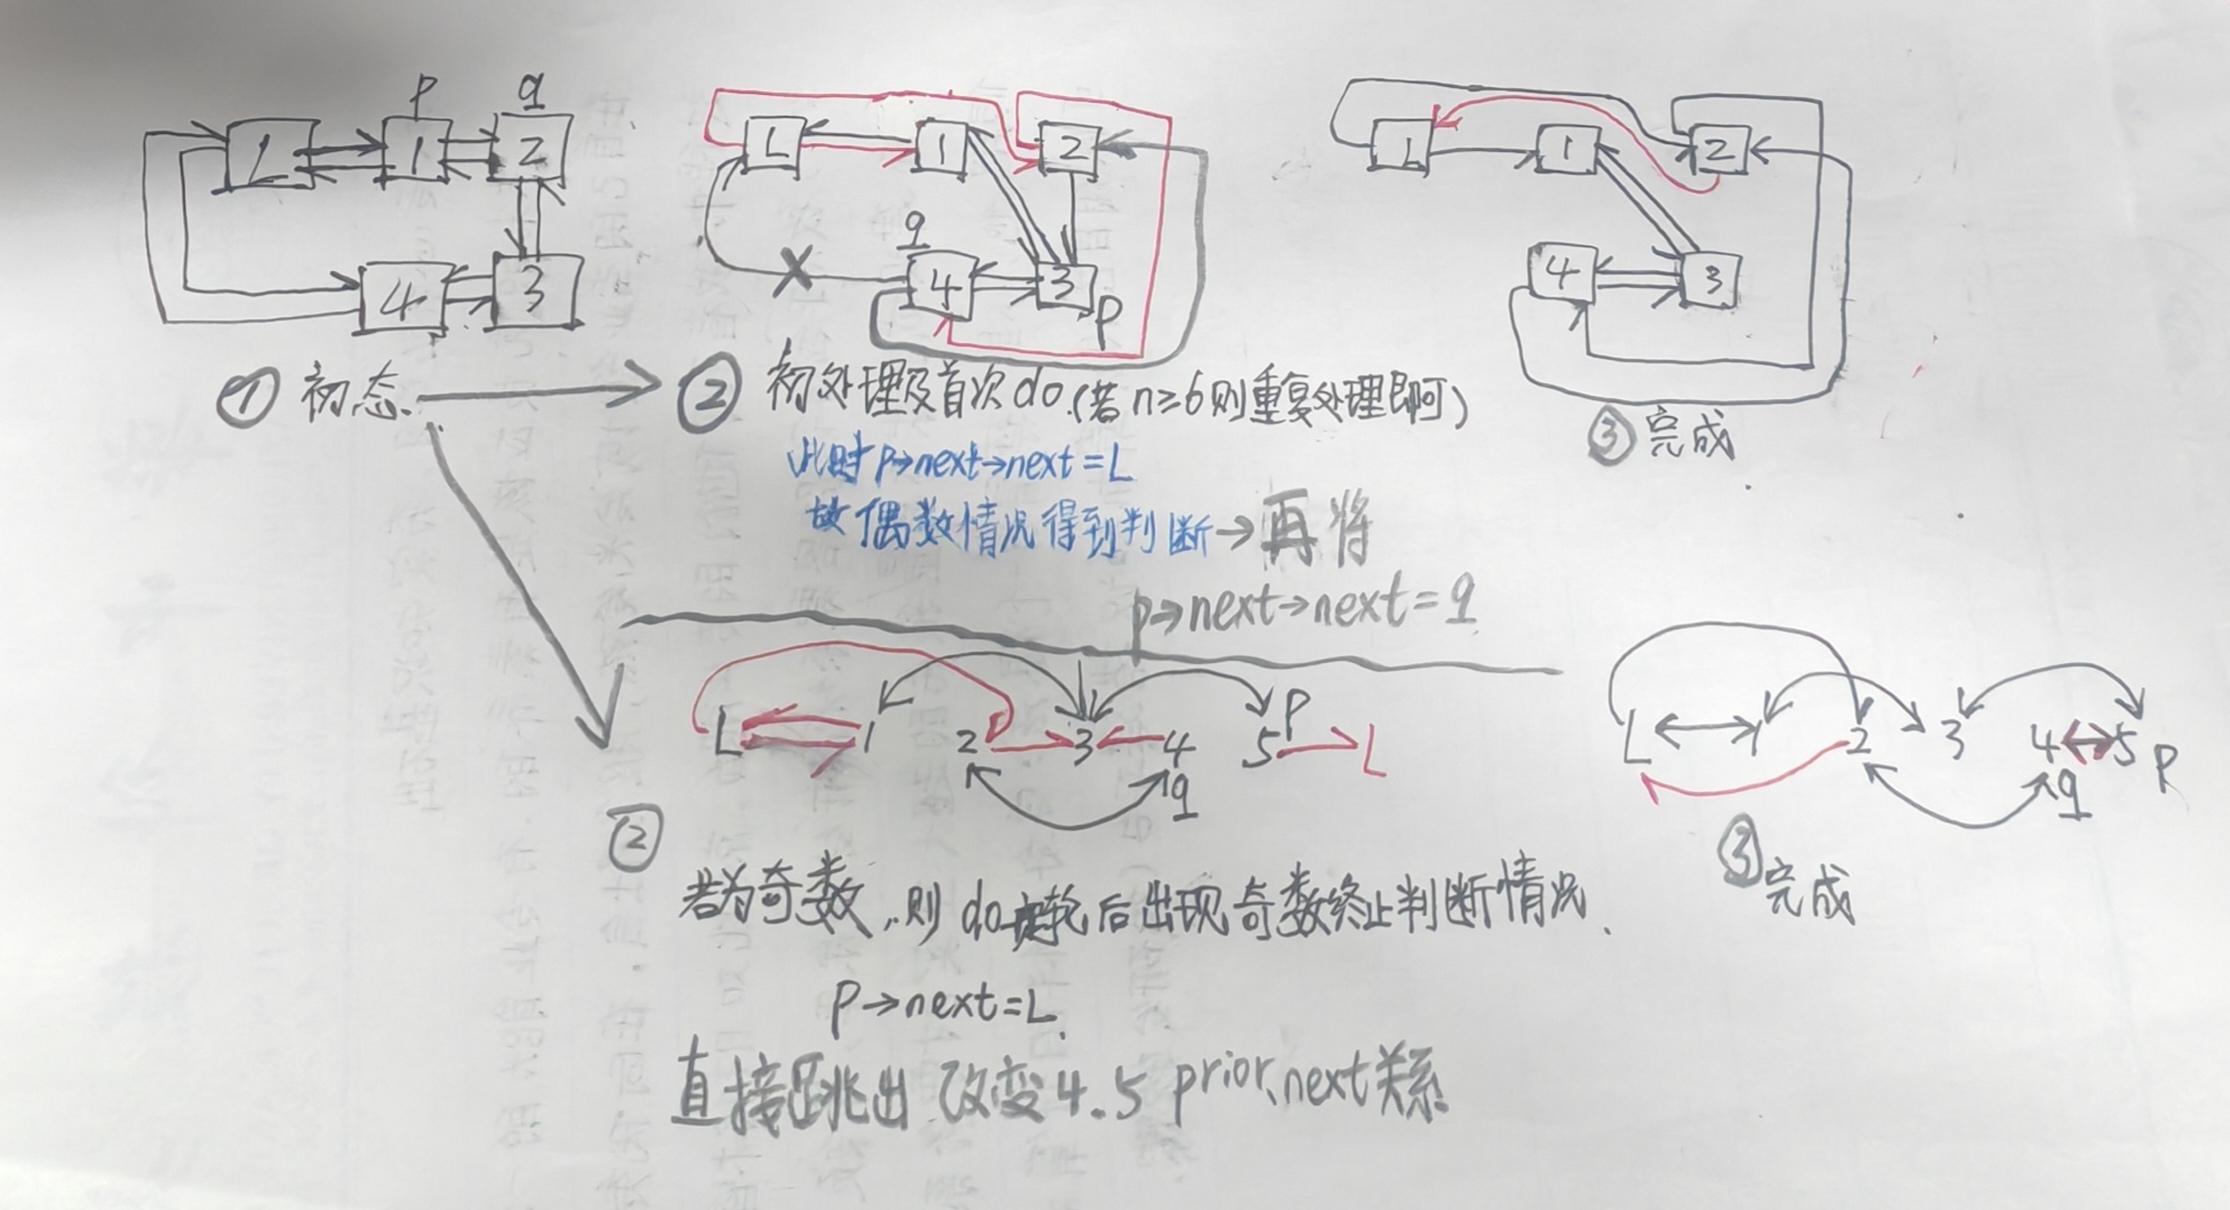 p q
L 1 2
4 3
① 初态
L 1 2
q
4 3
p
② 初处理及首次do.(若n≥6则重复处理即可)
此时p→next→next=L
故偶数情况得到判断→再将
p→next→next=q
L 1 2
4 3
③ 完成
L 1 2 3 4 5 L
p
q
②
若为奇数,则do 轮后出现奇数终止判断情况.
p→next=L.
直接跳出 改变4.5 prior、next关系.
L 1 2 3 4 5 p
q
③ 完成